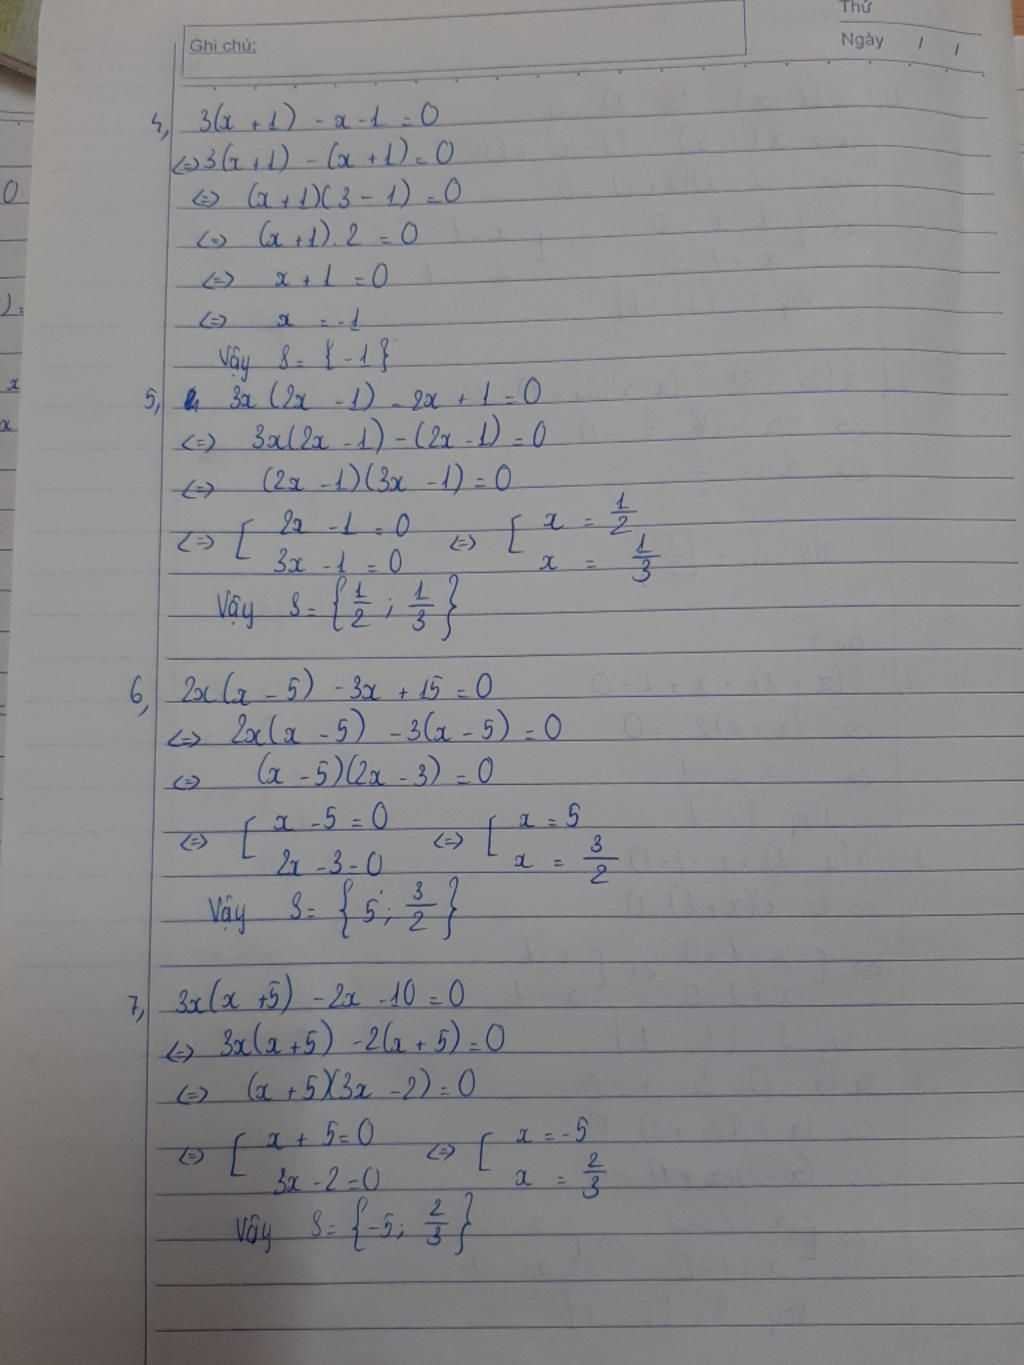 Thứ
Ghi chú:
Ngày / /
4, 3(x + 1) - x - 1 = 0
<=> 3(x + 1) - (x + 1) = 0
<=> (x + 1)(3 - 1) = 0
<=> (x + 1).2 = 0
<=> x + 1 = 0
<=> x = -1
Vậy S = {-1}
5, 3x(2x - 1) - 2x + 1 = 0
<=> 3x(2x - 1) - (2x - 1) = 0
<=> (2x - 1)(3x - 1) = 0
<=> [ 2x - 1 = 0 <=> [ x = 1/2
3x - 1 = 0 x = 1/3
Vậy S = {1/2 ; 1/3}
6, 2x(x - 5) - 3x + 15 = 0
<=> 2x(x - 5) - 3(x - 5) = 0
<=> (x - 5)(2x - 3) = 0
<=> [ x - 5 = 0 <=> [ x = 5
2x - 3 = 0 x = 3/2
Vậy S = {5 ; 3/2}
7, 3x(x + 5) - 2x - 10 = 0
<=> 3x(x + 5) - 2(x + 5) = 0
<=> (x + 5)(3x - 2) = 0
<=> [ x + 5 = 0 <=> [ x = -5
3x - 2 = 0 x = 2/3
Vậy S = {-5 ; 2/3}